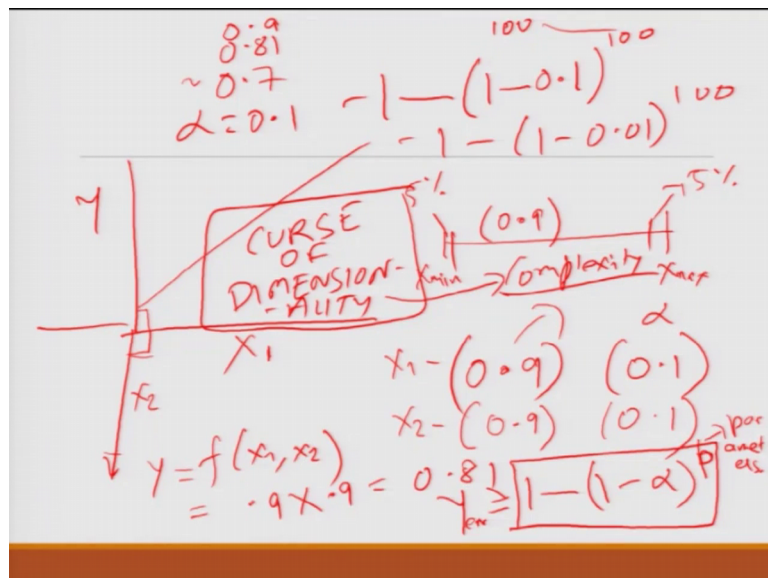 0.9
0.81
~ 0.7
α = 0.1
100 — 100
- 1 — (1 - 0.1)
- 1 - (1 - 0.01)^100
5%
→ 5%
(0.9)
y
CURSE
OF
DIMENSION-
-ALITY
xmin
Complexity
xmax
x1
x2
α
x1 - (0.9) (0.1)
x2 - (0.9) (0.1)
y = f(x1, x2)
= .9 x .9 = 0.81
yerr ≥ 1 — (1 - α)^p
par
amet
ers